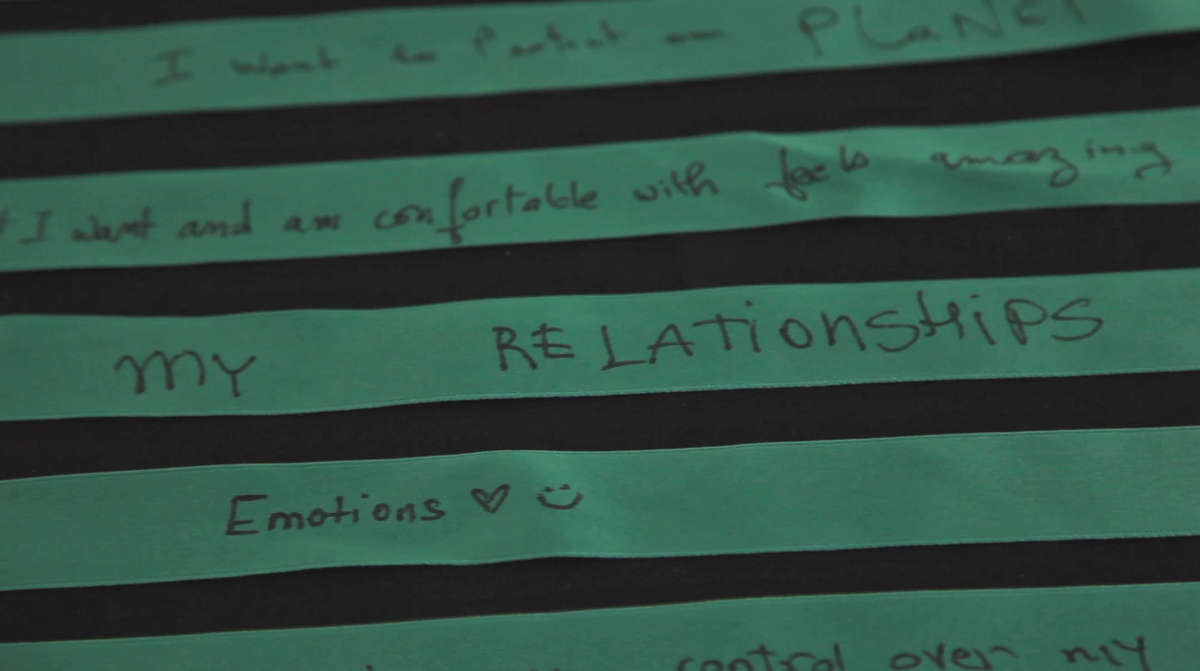 I want to Protect our PLaNET
I want and am confortable with feels amazing
MY RELATionSHiPS
Emotions ♡ :)
control over my